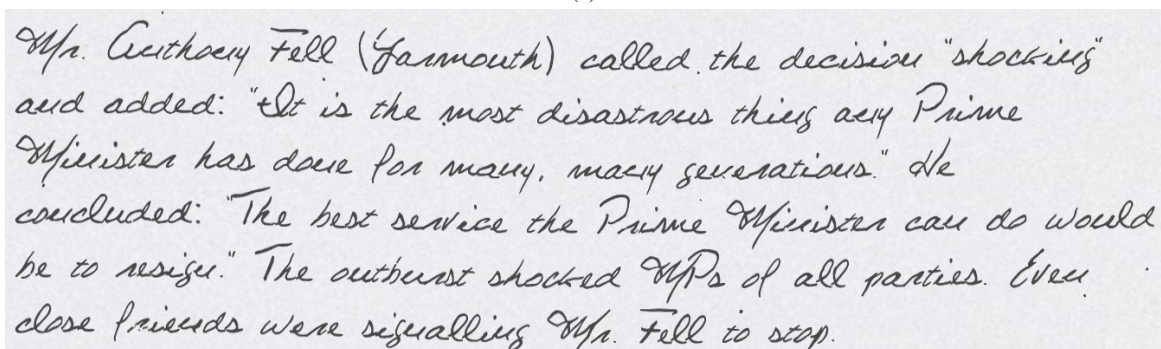 Mr. Anthony Fell (Yarmouth) called the decision "shocking"
and added: "It is the most disastrous thing any Prime
Minister has done for many, many generations." He
concluded: "The best service the Prime Minister can do would
be to resign." The outburst shocked MPs of all parties. Even
close friends were signalling Mr. Fell to stop.